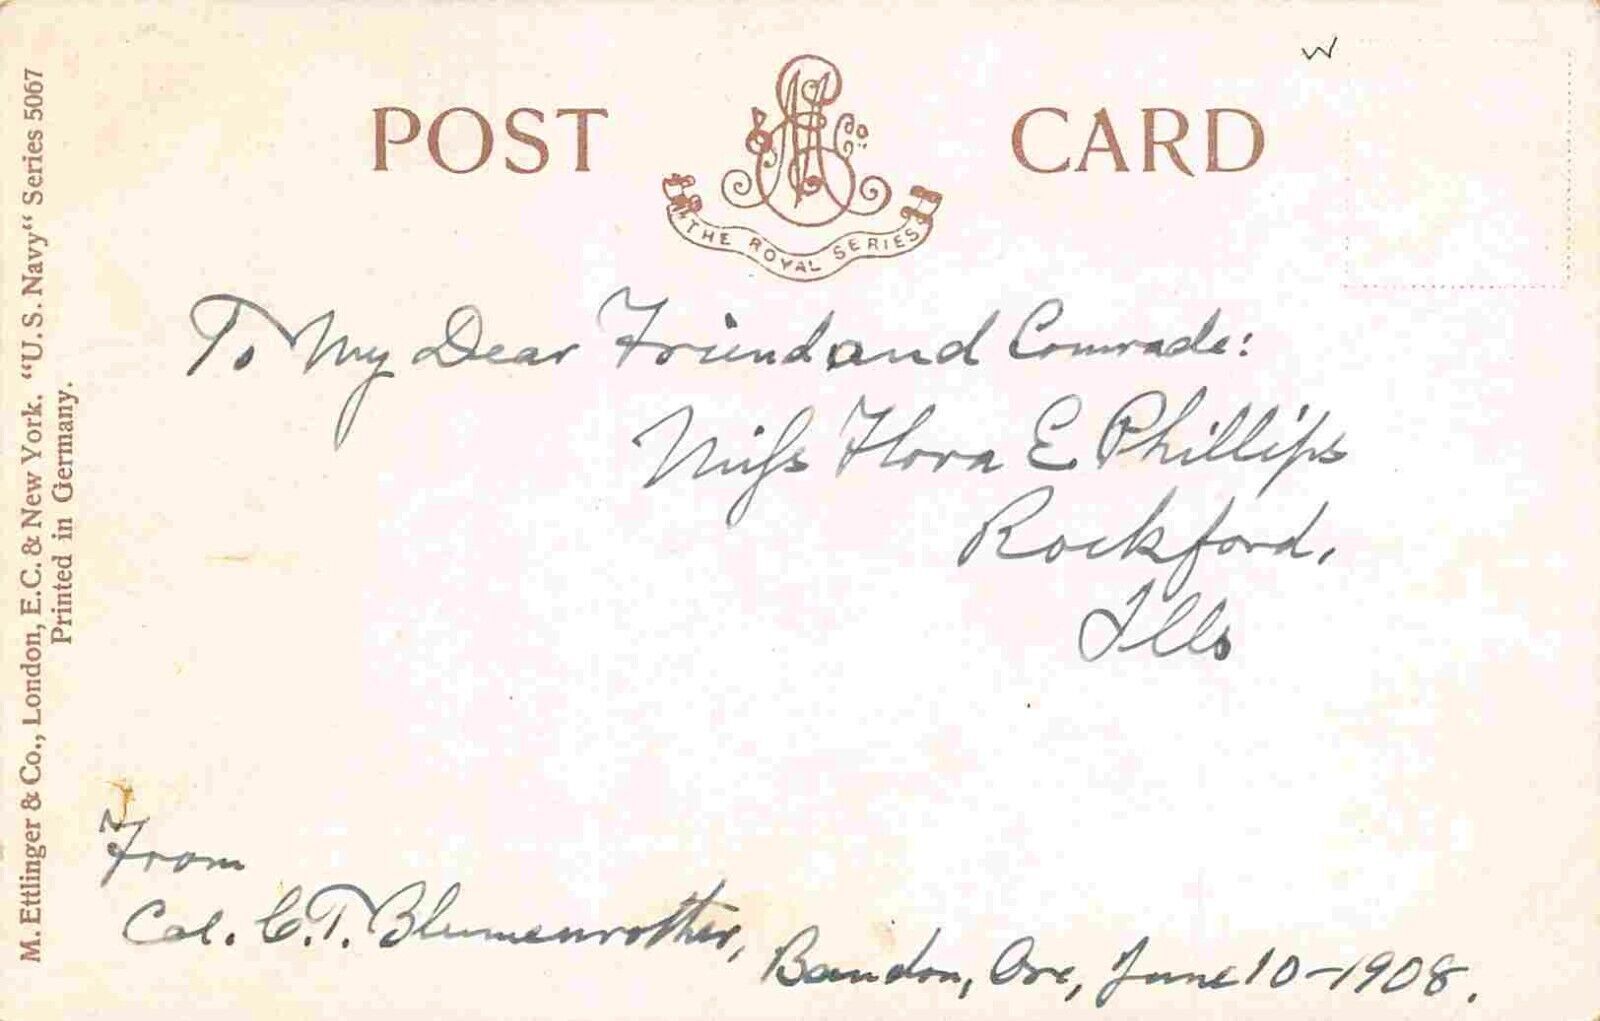 M. Ettlinger & Co., London, E.C. & New York. “U.S. Navy“ Series 5067
Printed in Germany.
POST CARD
& Co
THE ROYAL SERIES
W
To My Dear Friend and Comrade:
Miss Flora E Phillips
Rockford.
Ills
From
Col. C.T. Blumenrother,
Bandon, Ore, June 10-1908.